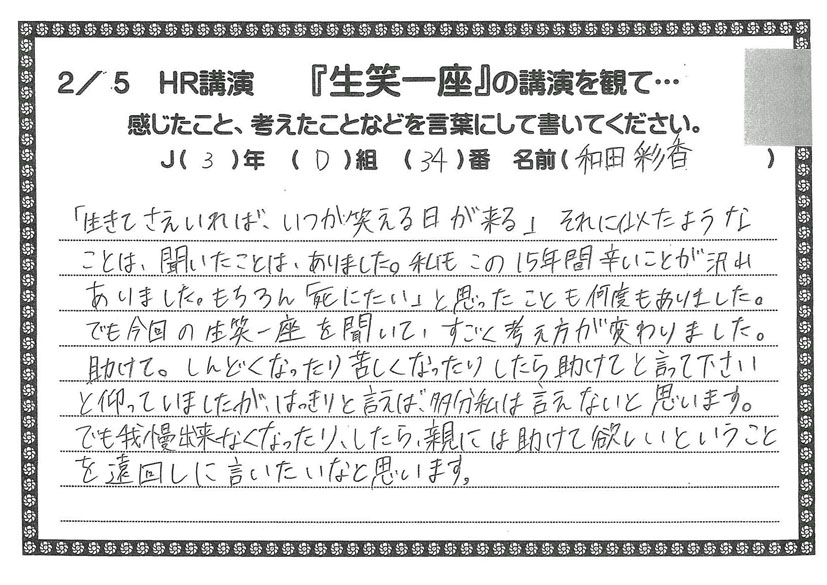 2／5　HR講演　『生笑一座』の講演を観て…
感じたこと、考えたことなどを言葉にして書いてください。
J（3）年　（D）組　（34）番　名前（和田 彩香　）
「生きてさえいれば、いつか笑える日が来る」それに似たような
ことは、聞いたことは、ありました。私もこの15年間辛いことが沢山
ありました。もちろん「死にたい」と思ったことも何度もありました。
でも今回の生笑一座を聞いて、すごく考え方が変わりました。
助けて。しんどくなったり苦しくなったりしたら助けてと言って下さい
と仰っていましたが、はっきりと言えば、多分私は言えないと思います。
でも我慢出来なくなったり、したら、親には助けて欲しいということ
を遠回しに言いたいなと思います。